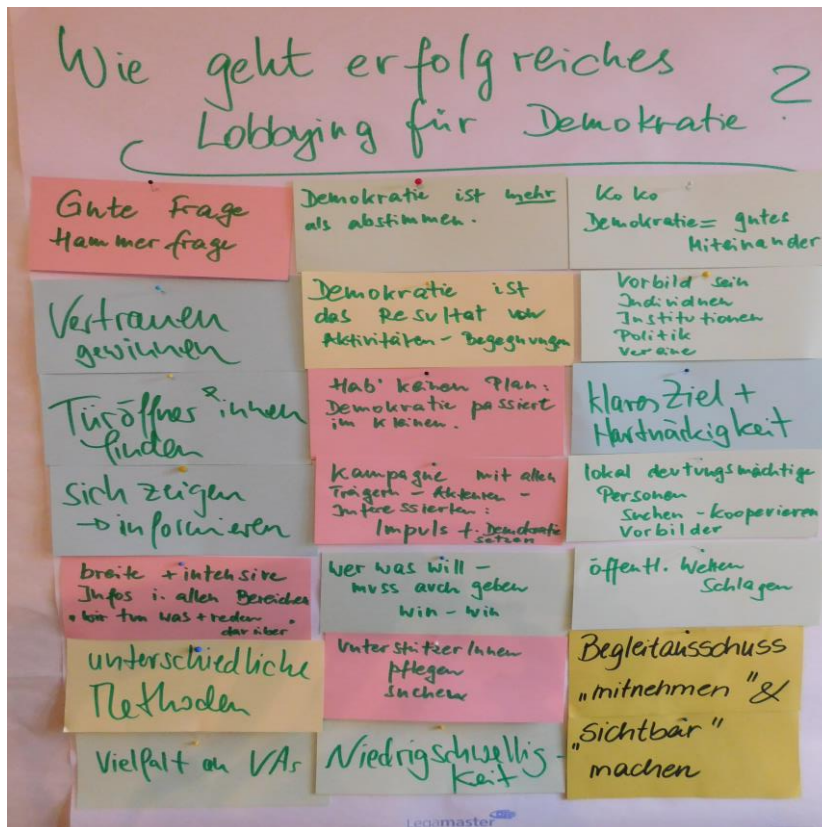 Wie geht erfolgreiches
Lobbying für Demokratie ?
Gute Frage
Hammerfrage
Vertrauen
gewinnen
Türöffner*innen
finden
sich zeigen
→ informieren
breite + intensive
Infos i. allen Bereichen
"wir tun was + reden
darüber"
unterschiedliche
Methoden
Vielfalt an VAs
Demokratie ist mehr
als abstimmen.
Demokratie ist
das Resultat von
Aktivitäten - Begegnungen
Hab' keinen Plan:
Demokratie passiert
im Kleinen.
Kampagne mit allen
Trägern - Akteuren -
Interessierten:
Impuls f. Demokratie
setzen
Wer was will -
muss auch geben
win - win
UnterstützerInnen
pflegen
suchen
Niedrigschwellig-
keit
KoKo
Demokratie = gutes
Miteinander
Vorbild sein
Individuen
Institutionen
Politik
Vereine
klares Ziel +
Hartnäckigkeit
lokal deutungsmächtige
Personen
suchen - kooperieren
Vorbilder
öffentl. Wellen
schlagen
Begleitausschuss
„mitnehmen" &
„sichtbar"
machen
Legamaster